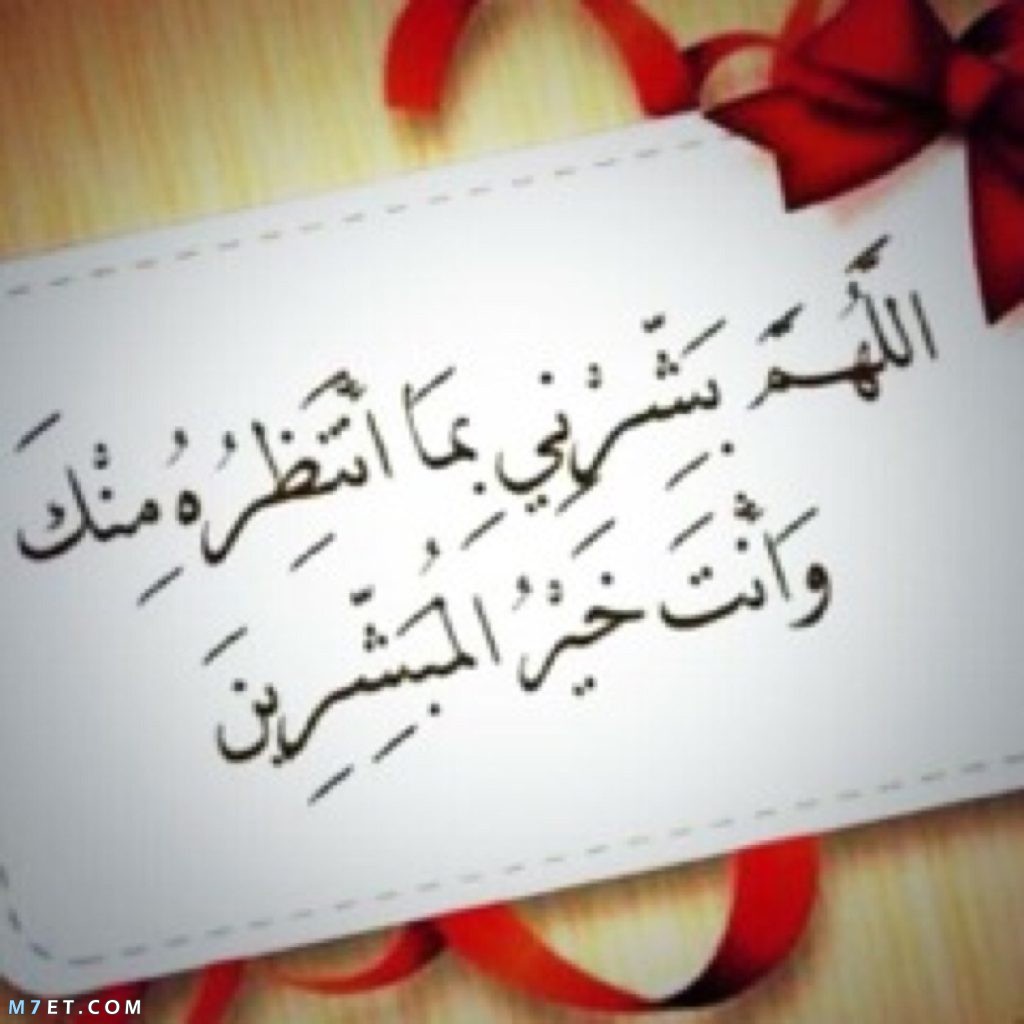 اللَّهُمَّ بَشِّرْنِي بِمَا انْتَظِرُهُ مِنْكَ
وَانْتَ خَيْرُ الْمُبَشِّرِينَ
M7ET.COM